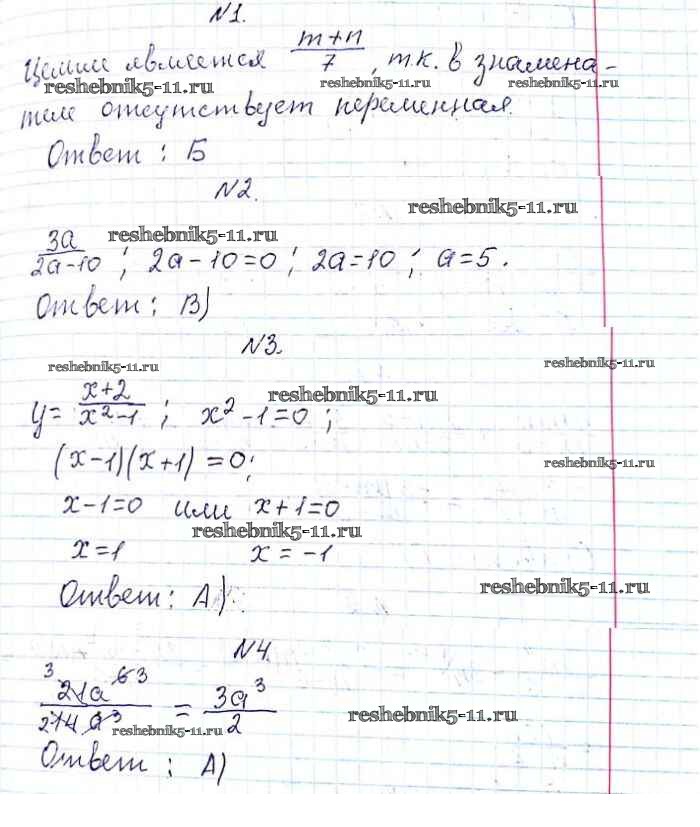 N1.
Целым является m+n/7, т.к. в знамена-
reshebnik5-11.ru reshebnik5-11.ru reshebnik5-11.ru
теле отсутствует переменная.
Ответ: Б
N2.
reshebnik5-11.ru
reshebnik5-11.ru
3a/2a-10; 2a-10=0; 2a=10; a=5.
Ответ: В)
N3.
reshebnik5-11.ru reshebnik5-11.ru
reshebnik5-11.ru
y= x+2/x²-1; x²-1=0;
(x-1)(x+1)=0; reshebnik5-11.ru
x-1=0 или x+1=0
reshebnik5-11.ru
x=1 x=-1
reshebnik5-11.ru
Ответ: А)
N4.
3 21a⁶ 3/2 14 a³ = 3a³/2
reshebnik5-11.ru reshebnik5-11.ru
Ответ: А)